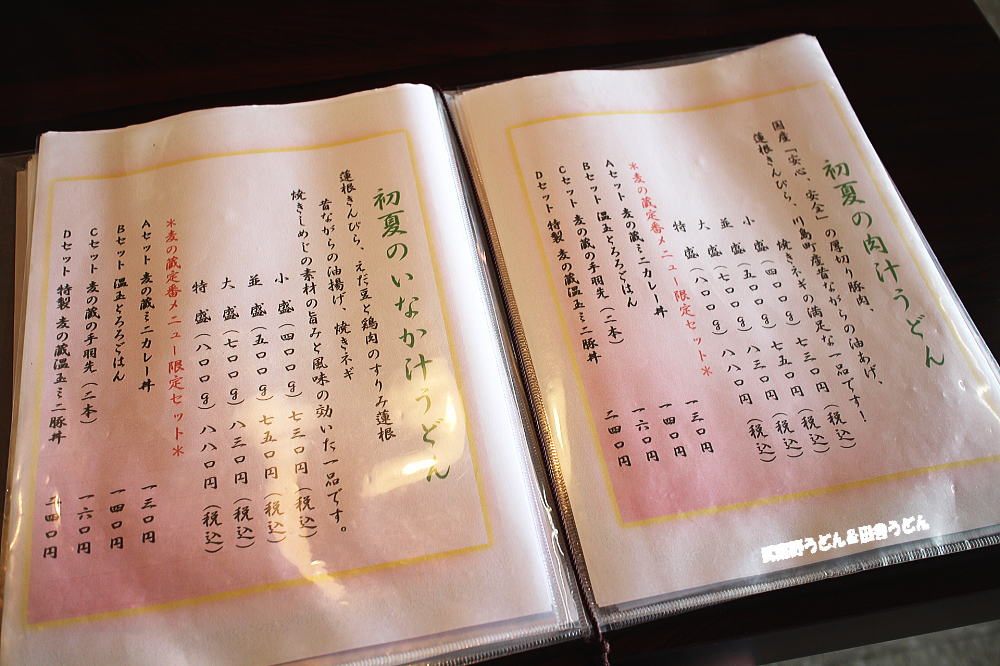 初夏の肉汁うどん
国産「安心、安全」の厚切り豚肉、
蓮根きんぴら、川島町産昔ながらの油あげ、
焼きネギの満足な一品です！
小　盛（四〇〇g）七三〇円（税込）
並　盛（五〇〇g）七五〇円（税込）
大　盛（七〇〇g）八三〇円（税込）
特　盛（八〇〇g）八八〇円（税込）
＊麦の蔵定番メニュー限定セット＊
Aセット 麦の蔵ミニカレー丼　一三〇円
Bセット 温玉とろろごはん　一四〇円
Cセット 麦の蔵の手羽先（二本）　一六〇円
Dセット 特製 麦の蔵温玉ミニ豚丼　二四〇円
初夏のいなか汁うどん
蓮根きんぴら、えだ豆と鶏肉のすりみ蓮根
昔ながらの油揚げ、焼きネギ
焼きしめじの素材の旨みと風味の効いた一品です。
小　盛（四〇〇g）七三〇円（税込）
並　盛（五〇〇g）七五〇円（税込）
大　盛（七〇〇g）八三〇円（税込）
特　盛（八〇〇g）八八〇円（税込）
＊麦の蔵定番メニュー限定セット＊
Aセット 麦の蔵ミニカレー丼　一三〇円
Bセット 温玉とろろごはん　一四〇円
Cセット 麦の蔵の手羽先（二本）　一六〇円
Dセット 特製 麦の蔵温玉ミニ豚丼　二四〇円
武蔵野うどん＆田舎うどん